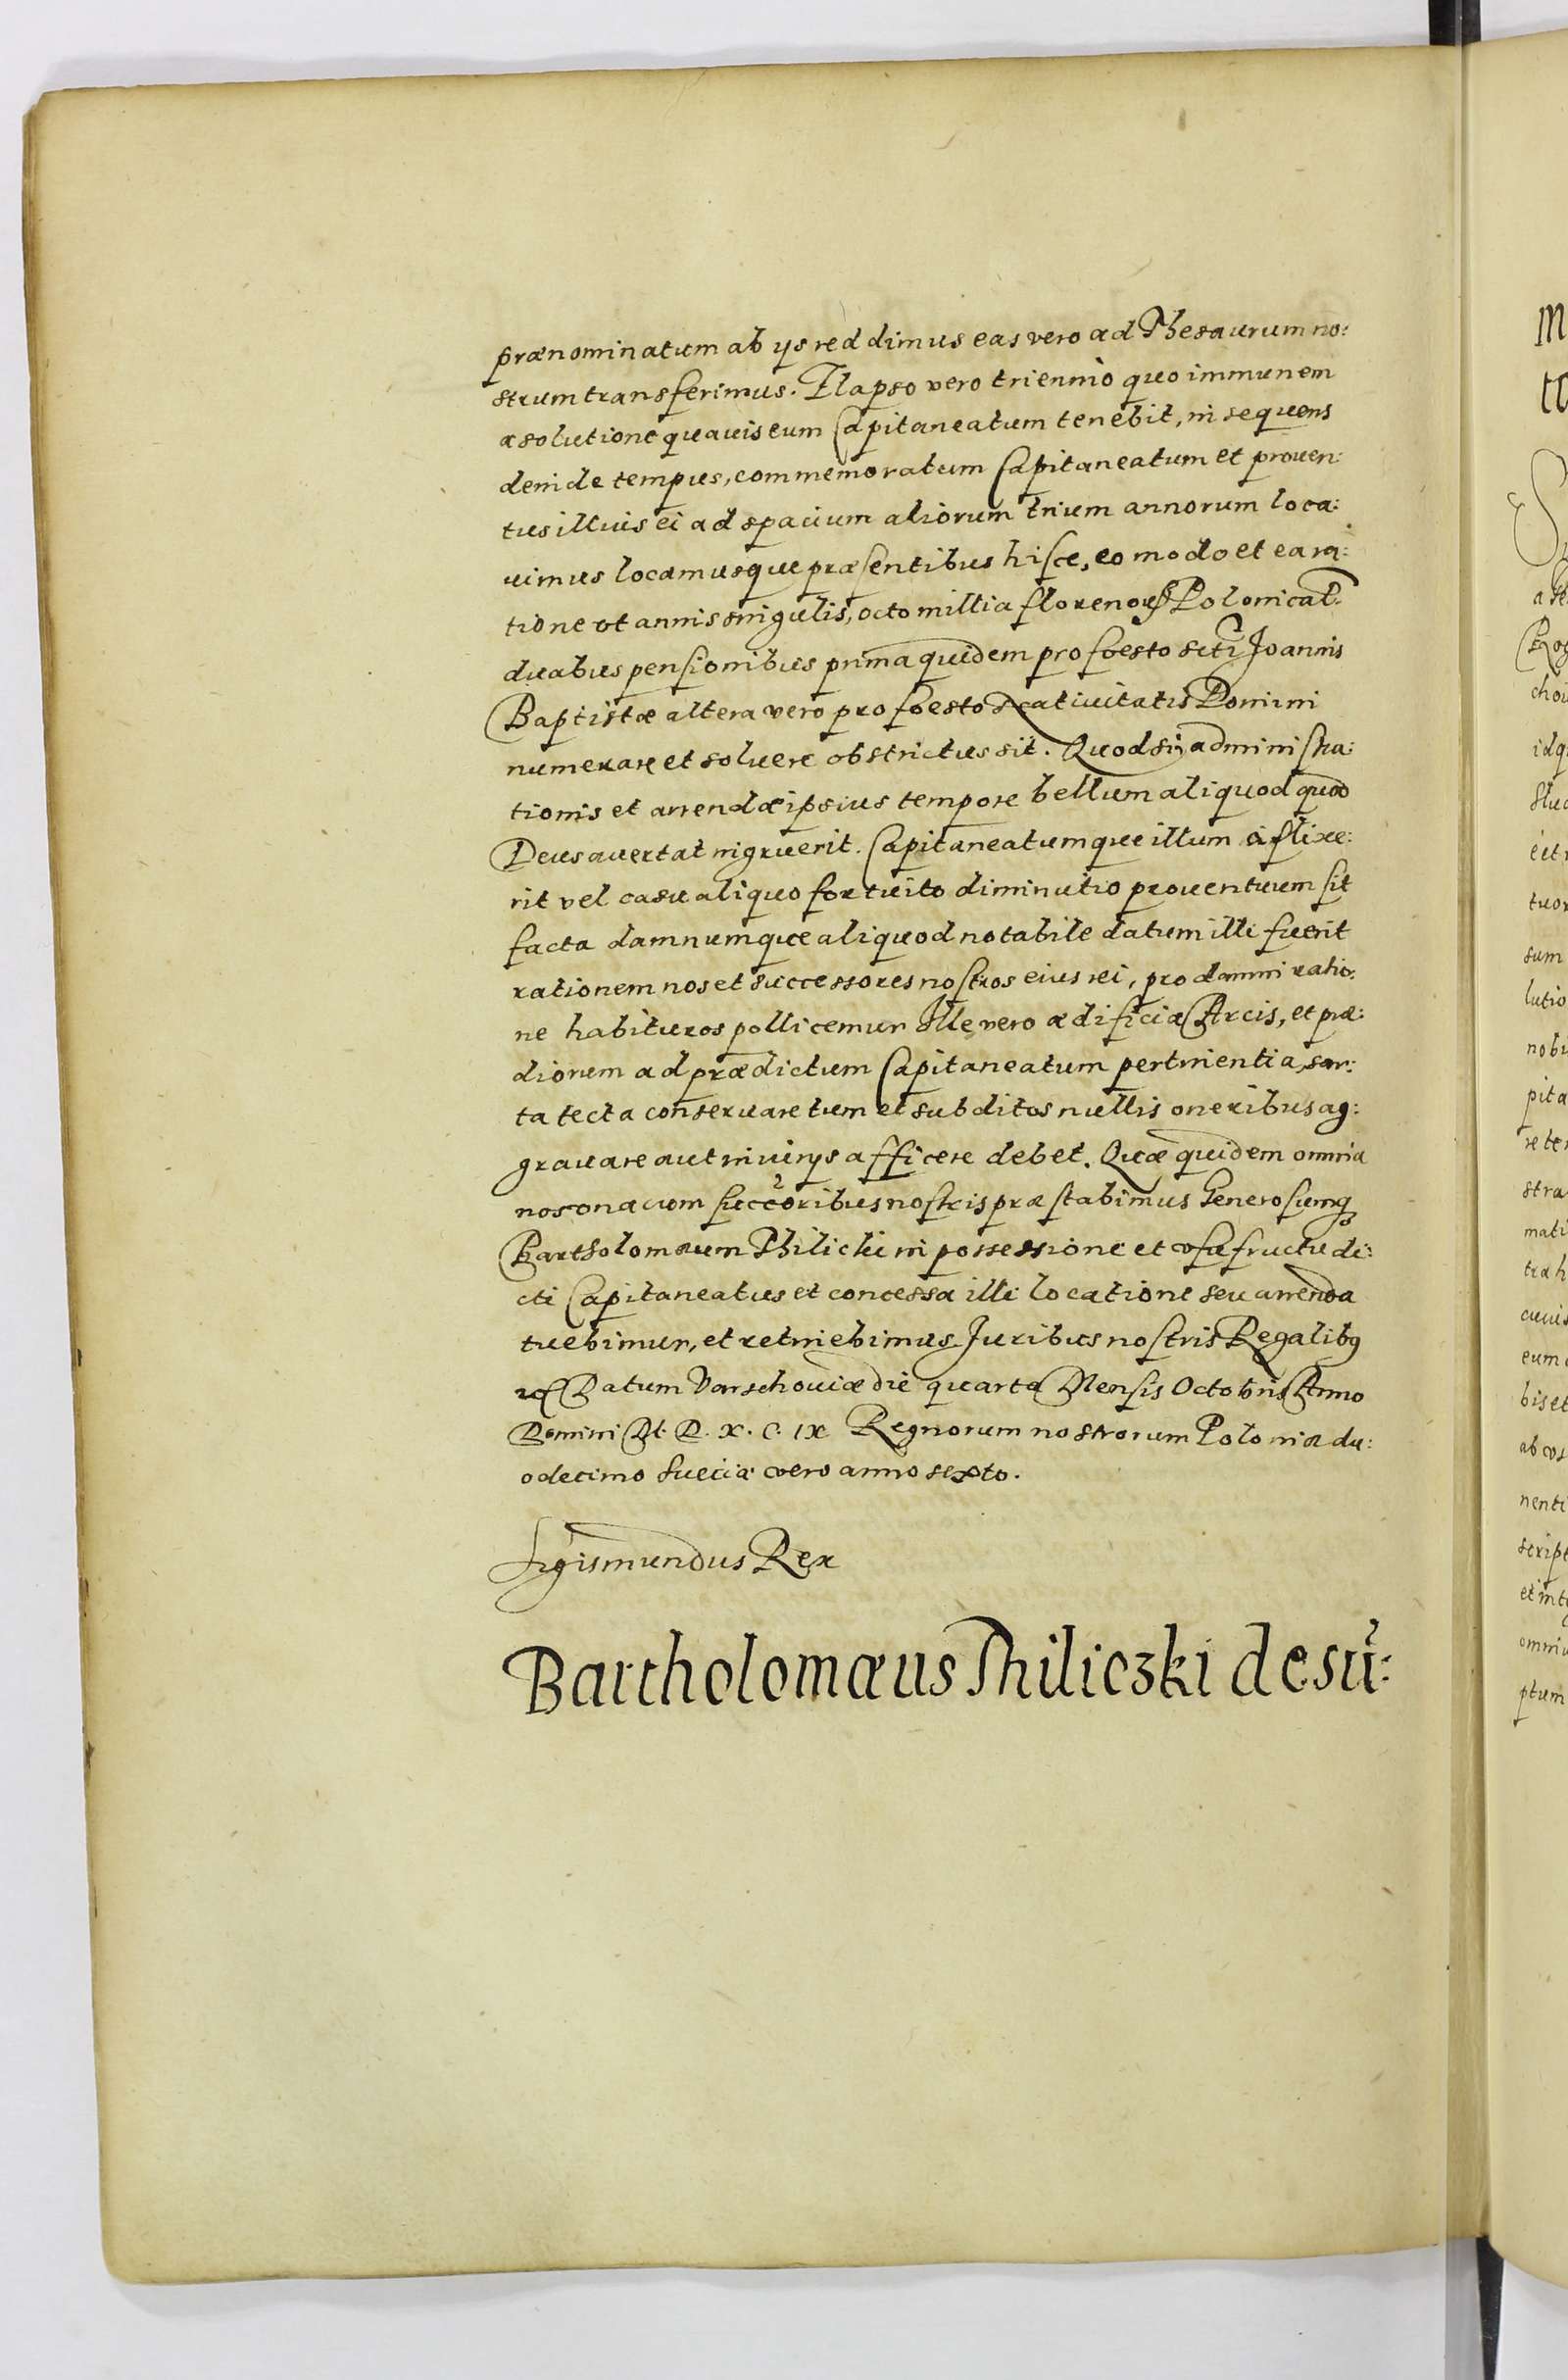 prænominatum ab ijs reddimus eas vero ad Thesaurum no:
strum transferimus. Elapso vero triennio quo immunem
a solutione quauis eum Capitaneatum tenebit, in sequens
deinde tempus, commemoratum Capitaneatum et prouen:
tus illius ei ad spacium aliorum trium annorum loca:
uimus locamusque præsentibus hisce, eo modo et ea ra:
tione vt annis singulis, octo millia florenorum Polonical:
duabus pensionibus prima quidem pro foesto scti Joannis
Baptistæ altera vero pro foesto Natiuitatis Domini
numerare et soluere obstrictus sit. Quod si administra:
tionis et arrendæ ipsius tempore bellum aliquod quod
Deus auertat ingruerit. Capitaneatumque illum aflixe:
rit vel casu aliquo fortuito diminutio prouentuum sit
facta damnumque aliquod notabile datum illi fuerit
rationem nos et successores nostros eius rei, pro damni ratio:
ne habituros pollicemur Ille vero ædificia Arcis, et præ:
diorum ad prædictum Capitaneatum pertinentia, sar:
ta tecta conseruare tum et subditos nullis oneribus ag:
grauare aut iniurijs afficere debet. Quæ quidem omnia
nos una cum succoribus nostris præstabimus Generosumq
Bartholomæum Thilicki in possessione et vsufructu di:
cti Capitaneatus et concessa illi locatione seu arrenda
tuebimur, et retinebimus. Juribus nostris Regalibq
Datum Varschouiæ die quarta Mensis Octobris Anno
Domini M. D. X. C. IX Regnorum nostrorum Poloniæ du:
odecimo Sueciæ vero anno sexto.
Sigismundus Rex
Bartholomæus Thiliczki de sú:
m
a
choi
idq
sum
lutio
nobu
pita
stra
mati
eum
biset
nenti
script
ptum